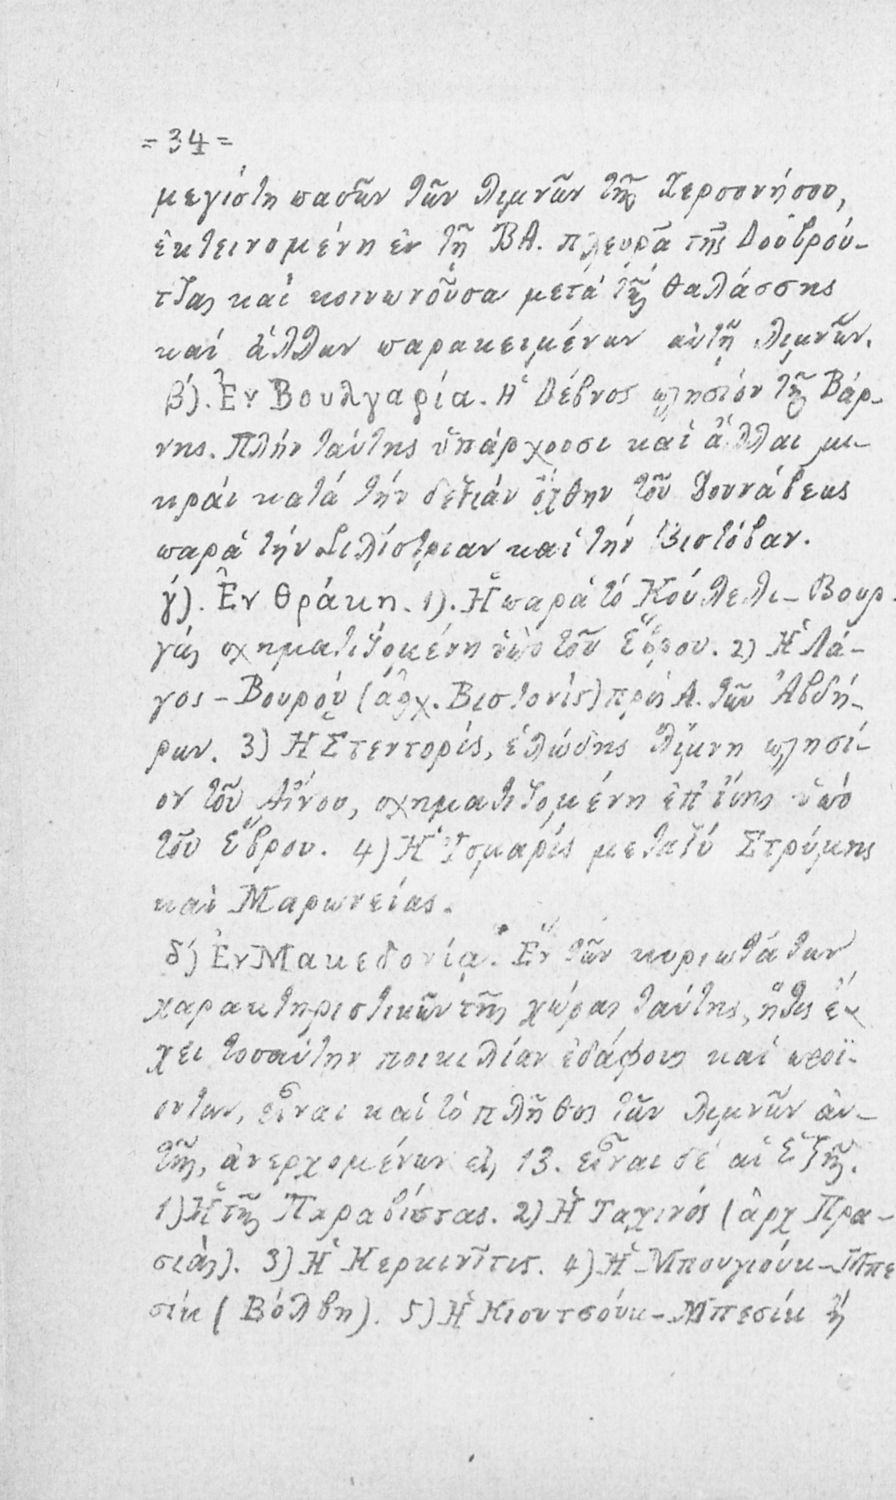 =34=
μεγίστη πασῶν τῶν λιμνῶν τῆς Χερσονήσου,
ἐκτεινομένη ἐν τῇ ΒΑ. πλευρᾷ τῆς Δουβρού-
τζας καὶ κοινωνοῦσα μετὰ τῆς θαλάσσης
καὶ ἄλλων παρακειμένων αὐτῇ λιμνῶν.
β). Ἐν Βουλγαρίᾳ. Ἡ Δέβνος πλησίον τῆς Βάρ-
νης. Πλὴν ταύτης ὑπάρχουσι καὶ ἄλλαι μι-
κραὶ κατὰ τὴν δεξιὰν ὄχθην τοῦ Δουνάβεως
παρὰ τὴν Σιλίστριαν καὶ τὴν Βιστόβαν.
γ). Ἐν Θράκῃ. 1). Ἡ παρὰ τὸ Κούλελι-Βουρ-
γὰς σχηματιζομένη ὑπὸ τοῦ Ἕβρου. 2) Ἡ Λά-
γος-Βουροὺ (ἀρχ. Βιστονίς) πρὸς Α. τῶν Ἀβδή-
ρων. 3) Ἡ Στεντορίς, ἑλώδης λίμνη πλησί-
ον τοῦ Αἴνου, σχηματιζομένη ἐπίσης ὑπὸ
τοῦ Ἕβρου. 4) Ἡ Ἰσμαρίς μεταξὺ Στρύμης
καὶ Μαρωνείας.
δ) Ἐν Μακεδονίᾳ. Ἓν τῶν κυριωτάτων
χαρακτηριστικῶν τῆς χώρας ταύτης, ἥτις ἔ-
χει τοσαύτην ποικιλίαν ἐδάφους καὶ προϊ-
όντων, εἶναι καὶ τὸ πλῆθος τῶν λιμνῶν αὐ-
τῆς, ἀνερχομένων εἰς 13. εἶναι δὲ αἱ ἑξῆς.
1) Ἡ τῆς Πραβίστας. 2) Ἡ Ταχινός (ἀρχ Πρα-
σιάς). 3) Ἡ Κερκινῖτις. 4) Ἡ Μπουγιούκ-Μπε
σίκ (Βόλβη). 5) Ἡ Κιουτσούκ-Μπεσίκ ἢ